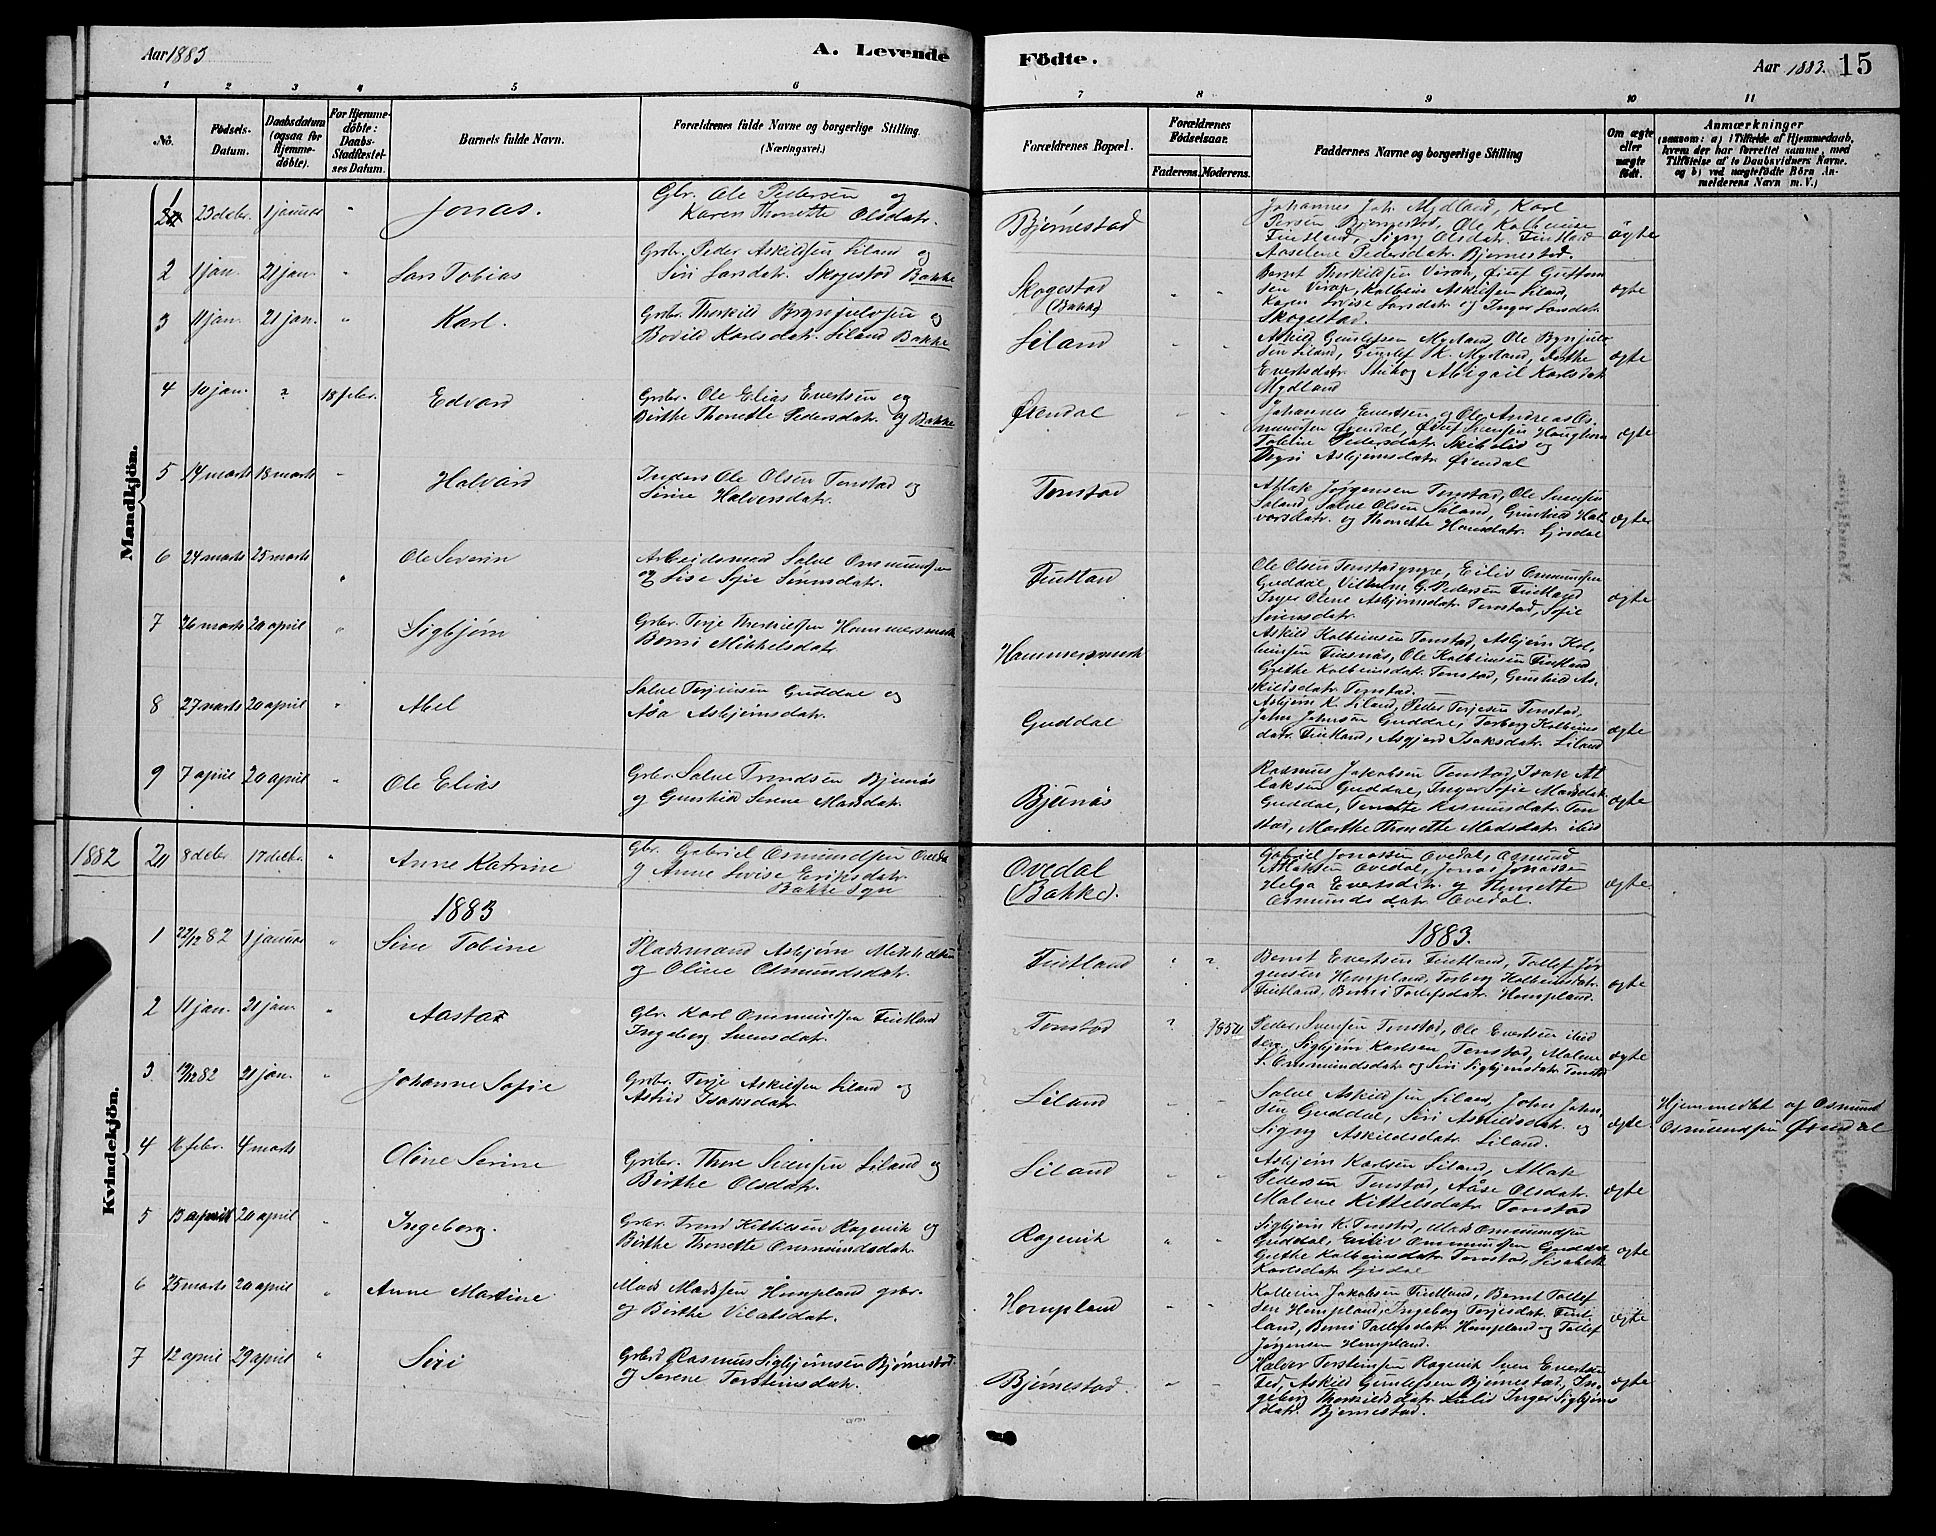 Aar 1883
A. Levende
Födte.
Aar 1883. 15
1 2 3 4 5 6 7 8 9 10 11
No.
Födsels-
Datum.
Daabsdatum
(ogsaa for
Hjemme-
döbte).
For Hjemme-
döbte:
Daabs-
Stadfæstel-
ses Datum.
Barnets fulde Navn.
Forældrenes fulde Navne og borgerlige Stilling
(Næringsvei.)
Forældrenes Bopæl.
Forældrenes
Födselsaar.
Faderens. Moderens.
Faddernes Navne og borgerlige Stilling
Om ægte
eller
uægte
födt.
Anmærkninger
(saasom: a) i Tilfælde af Hjemmedaab,
hvem der har forrettet samme, med
Tilföielse af to Daabsvidners Navne.
og b) ved uægtefödte Börn An-
melderens Navn m. V.)
Mandkjön.
1 23 debr. 1 januar " Jonas.
Gbr. Ole Pedersen og
Karen Thonette Olsdatr.
Bjørnestad
Johannes Joh. Mydland, Karl
Persen Bjørnestad, Ole Kolbeinsen
Fintland, Signy Olsdatr. Fintland
Aaselene Pedersdatr. Bjørnestad.
ægte
2 1 jan. 21 jan. " Lars Tobias
Grbr. Peder Askildsen Liland og
Siri Larsdatr. Skogestad Bakke
Skogestad
(Bakke)
Bernt Therkildsen Virak, Gustom
sen Virak, Kolbein Askildsen Liland,
Karen Lovise Larsdatr. og Inger Larsdatr.
Skogestad.
ægte
3 11 jan. 21 jan. " Karl.
Grbr. Therkild Brynjulvsen og
Bovild Karlsdatr. Liland Bakke
Liland
Askild Gunlefsen Mydland, Ole Brynjulv
sen Liland, Gunlef K. Mydland, Dorthe
Evertsdatr. og Abigail Karlsdatr.
Mydland
ægte
4 10 jan. " 18 febr. Edvard
Grbr. Ole Elias Evertsen og
Birthe Thonette Pedersdatr. og Bakke
Øxendal
Johannes Evertsen og Ole Andreas Os-
mundsen Øxendal, Svensen Haughom
Tobine Pedersdatr. Skibelid og
Thyri Asbjørnsdatr. Øxendal
ægte
5 14 marts 18 marts " Halvard
Inders Ole Olsen Tonstad og
Sirine Halvorsdatr.
Tonstad
Atlak Jørgensen Tonstad, Ole Svensen
Liland, Salve Olsen Liland, Gunhild Hal-
vorsdatr. og Thonette Hansdatr. Josdal
ægte
6 24 marts 25 marts " Ole Severin
Arbeidsmand Salve Ommundsen
og Lise Sofie Simonsdatr.
Fintland
Ole Olsen Tonstad yngre, Eiliv Ommundsen
Guddal, Vilhelm G. Pedersen Fintland
Inger Olene Asbjørnsdatr. Tonstad, Sofie
Simonsdatr.
ægte
7 26 marts 20 april " Sigbjørn
Grbr. Terje Therkildsen Hammersmark
Berni Mikkelsdatr.
Hammersmark
Askild Kolbeinsen Tonstad, Asbjørn Kol-
beinsen Fintland, Ole Kolbeinsen Fintland
Grethe Kolbeinsdatr. Tonstad, Gunhild As-
kildsdatr. Tonstad.
8 27 marts 20 april " Abel
Salve Terjesen Guddal og
Åsa Asbjørnsdatr.
Guddal
Asbjørn K. Liland, Peder Terjesen Tonstad,
John Johnsen Guddal, Torborg Kolbeins
datr. Fintland, Asgjerd Isaksdatr. Liland
ægte
9 7 april 20 april " Ole Elias
Grbr. Salve Trondsen Bjunås
og Gunhild Serene Mansdatr.
Bjunås
Rasmus Jakobsen Tonstad, Isak At-
laksen Guddal, Inger Sofie Mansdatr.
Guddal, Tonette Rasmusdatr. Ton
stad, Marthe Thonette Madsdatr. ibid
ægte
1882
Kvindekjön.
20 8 debr. 17 debr. " Anne Katrine
Gbr. Gabriel Osmundsen Ovedal
og Anne Lovise Eriksdatr.
Bakke Sogn
Ovedal
(Bakke).
Gabriel Jonassen Ovedal, Osmund
Atlaksen Ovedal, Jonas Jonassen
Helga Evertsdatr. og Thonette
Osmunds datr. Ovedal.
ægte
1883
1883.
1 22/12 82 1 januar " Sine Tobine
Pladsmand Asbjørn Mikkelsen
og Oline Osmundsdatr.
Fintland
? ?
Bernt Evertsen Fintland, Tollef Jør
gensen Hompland, Torborg Kolbeinsdatr.
Fintland, Berni Tollefsdatr. Hompland.
ægte
2 11 jan. 21 jan. " Aasta
Gbr. Karl Ommundsen Fintland
Ingeborg Svensdatr.
Tonstad
? 1850
Peder Svensen Tonstad, Ole Evertsen ibid
Sigbjørn Karlsen Tonstad, Malene
S. Ommundsdatr. og Siri Sigbjørnsdatr. Tonstad
ægte
3 19/12 82 21 jan. " Johanne Sofie
Grbr. Terje Askildsen Liland og
Astrid Isaksdatr.
Liland
Salve Askildsen Liland, John John-
sen Guddal, Siri Askildsdatr. og
Signy Askildsdatr. Liland.
ægte.
Hjemmedøbt af Osmund
Osmundsen Øxendal
4 16 febr. 4 marts Oline Serine
Grbr. Thore Sørensen Liland og
Birthe Olsdatr.
Liland
Asbjørn Karlsen Liland, Atlak
Pedersen Tonstad, Åase Olsdatr.
Malene Kittelsdatr. Tonstad
ægte
5 13 april 20 april " Ingeborg.
Grbr. Trond Kittelsen Ragevik og
Birthe Thonette Ommundsdatr.
Ragevik
Sigbjørn K. Tonstad, Mads Ommundsen
Guddal, Eiliv Ommundsen Guddal
Grethe Kolbeinsdatr. Tonstad, Lisabeth
Karlsdatr. Josdal
ægte
6 25 marts 20 april " Anne Martine
Mads Madssen Hompland grbr.
og Birthe Vilatsdatr.
Hompland
Kolbein Jakobsen Fintland, Bernt Tollef
sen Hompland, Ingeborg Terjesdatr. Fint-
land, Berni Tollefsdatr. Hompland og Tollef
Jørgensen Hompland.
ægte
7 12 april 29 april " Siri
Grbr. Rasmus Sigbjørnsen Bjørnestad
og Serene Torsteinsdatr.
Bjørnestad.
Halvor Torsteinsen Ragevik Sven Evertsen
Fed, Askild Gunlefssen Bjørnestad, In-
geborg Therkildsdatr. Inger Sigbjørns
datr. Bjørnestad.
ægte